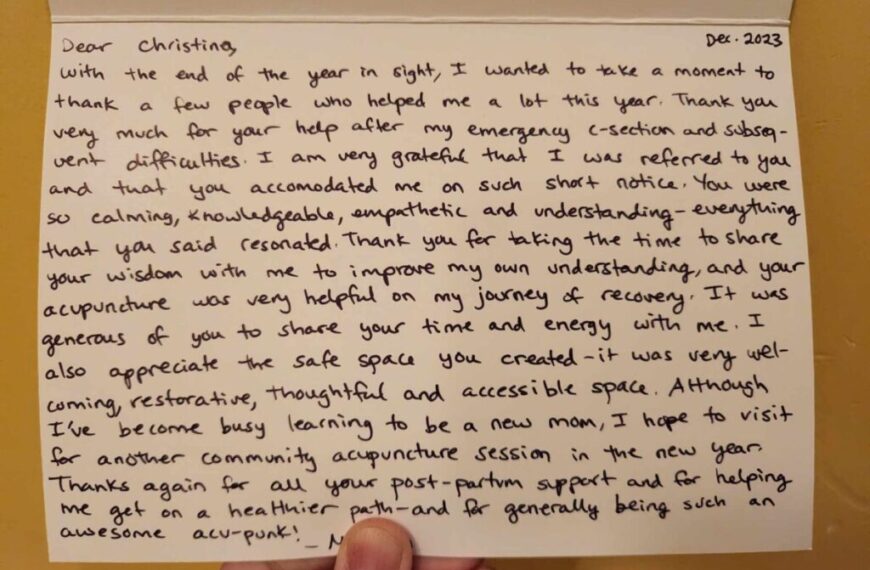 Dear Christina,
Dec. 2023
With the end of the year in sight, I wanted to take a moment to
thank a few people who helped me a lot this year. Thank you
very much for your help after my emergency c-section and subseq-
uent difficulties. I am very grateful that I was referred to you
and that you accomodated me on such short notice. You were
so calming, knowledgeable, empathetic and understanding - everything
that you said resonated. Thank you for taking the time to share
your wisdom with me to improve my own understanding, and your
acupuncture was very helpful on my journey of recovery. It was
generous of you to share your time and energy with me. I
also appreciate the safe space you created - it was very wel-
coming, restorative, thoughtful and accessible space. Although
I've become busy learning to be a new mom, I hope to visit
for another community acupuncture session in the new year.
Thanks again for all your post-partum support and for helping
me get on a healthier path - and for generally being such an
awesome acu-punk! -